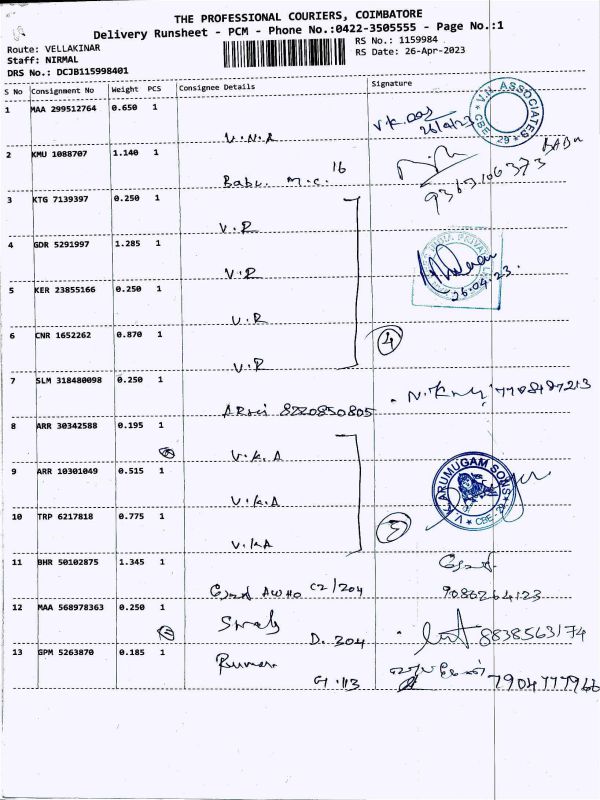 THE PROFESSIONAL COURIERS, COIMBATORE
Delivery Runsheet - PCM - Phone No.:0422-3505555 - Page No.:1
Route: VELLAKINAR
RS No.: 1159984
Staff: NIRMAL
RS Date: 26-Apr-2023
DRS No.: DCJB115998401
S No Consignment No Weight PCS Consignee Details Signature
1 MAA 299512764 0.650 1
V.N.A
26/4/23
V.N. ASSOCIATES
CBE - 29
2 KMU 1088707 1.140 1
Babu. M.C. 16
BABU
3 KTG 7139397 0.250 1
V.R
4 GDR 5291997 1.285 1
V.R
26.04.23.
5 KER 23855166 0.250 1
V.R
6 CNR 1652262 0.870 1
V.R
4
7 SLM 318480098 0.250 1
8220850805
8 ARR 30342588 0.195 1
V.K.A
9 ARR 10301049 0.515 1
V.K.A
V.K. ARUMUGAM SONS
10 TRP 6217818 0.775 1
V.KA
3
11 BHR 50102875 1.345 1
AWHO C2/204
9086264123
12 MAA 568978363 0.250 1
D. 304
8838563174
13 GPM 5263870 0.185 1
Kumar
G.113